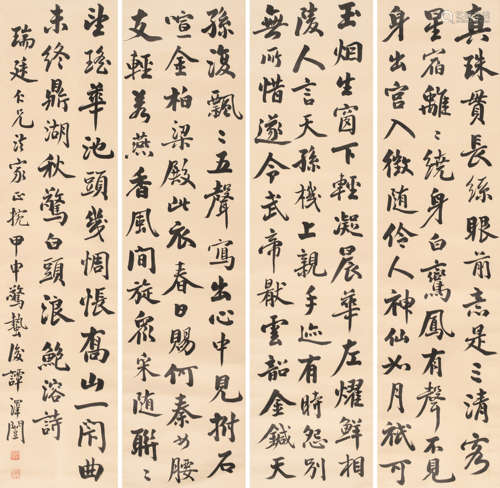 真珠貫長絲眼前意是三清客
星宿離離繞身白鸞鳳有聲不見
身出宮入徵隨伶人神仙如月祇可
玉烟生窗下輕凝晨華左耀鮮相
陵人言天孫機上親手迹有時怨別
無所惜遂令武帝厭雲韶金鍼天
絲綴飄〻五聲寫出心中見拊石
喧金柏梁殿此衣春日賜何秦女腰
支輕若燕香風間旋眾采隨聯〻
望瑤華池頭幾惆悵喬山一閉曲
未終鼎湖秋驚白頭浪鮑溶詩
瑞廷仁兄法家正捥甲申驚蟄後譚澤闓